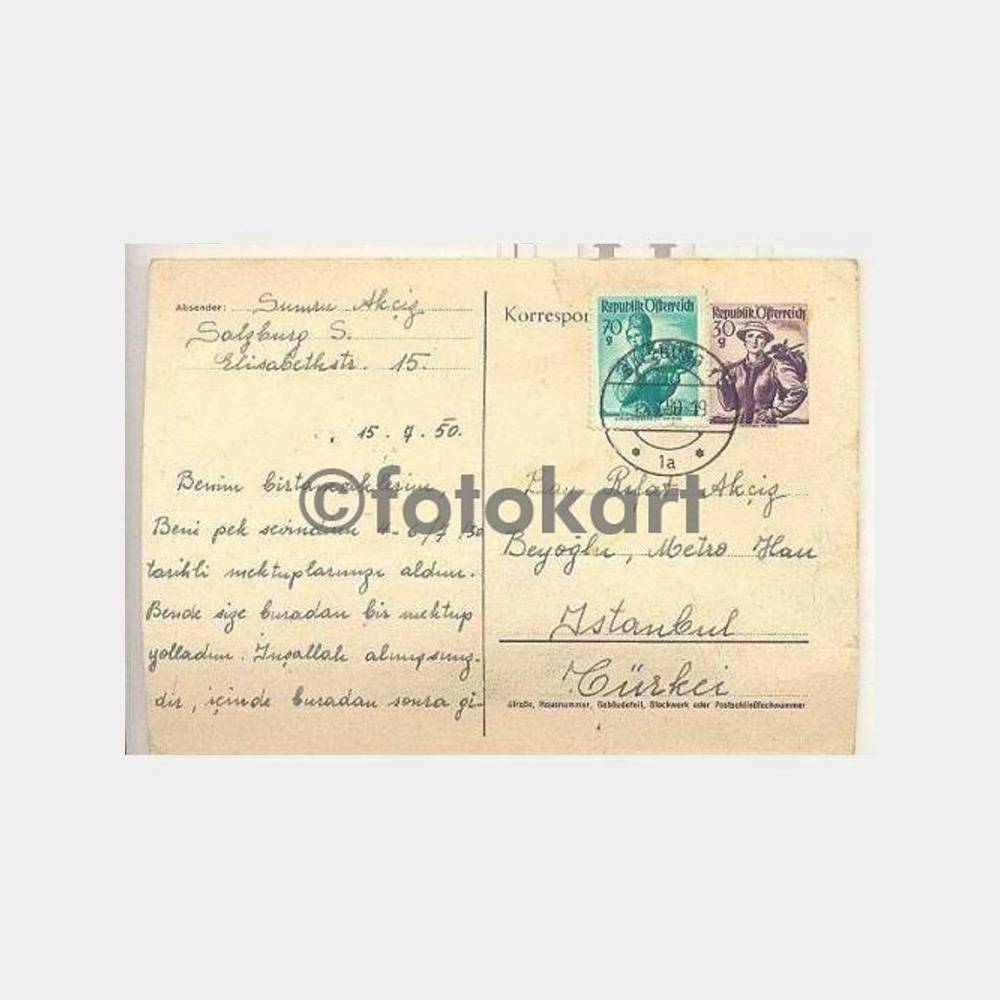 Absender: Sumru Akçiz
Salzburg S.
Elisabethstr. 15.
15.7.50.
Benim birtaneciklerim,
Beni pek sevindiren 4-6/7/50
tarihli mektuplarınızı aldım.
Bende size buradan bir mektup
yolladım. İnşallah almışsınız-
dır, içinde buradan sonra gi-
Korrespon
Republik Österreich
70
g
Republik Österreich
30
g
SALZBURG
1a
Bay Rıfat Akçiz
Beyoğlu, Metro Han
Istanbul
Türkei
Straße, Hausnummer, Gebäudeteil, Stockwerk oder Postschließfachnummer
©fotokart